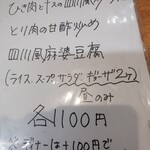 ひき肉とナスの四川風
とり肉の甘酢炒め
四川風麻婆豆腐
(ライス、スープ、サラダ、ギョーザ2ケ)
昼のみ
各1100円
ディナーは+100円で